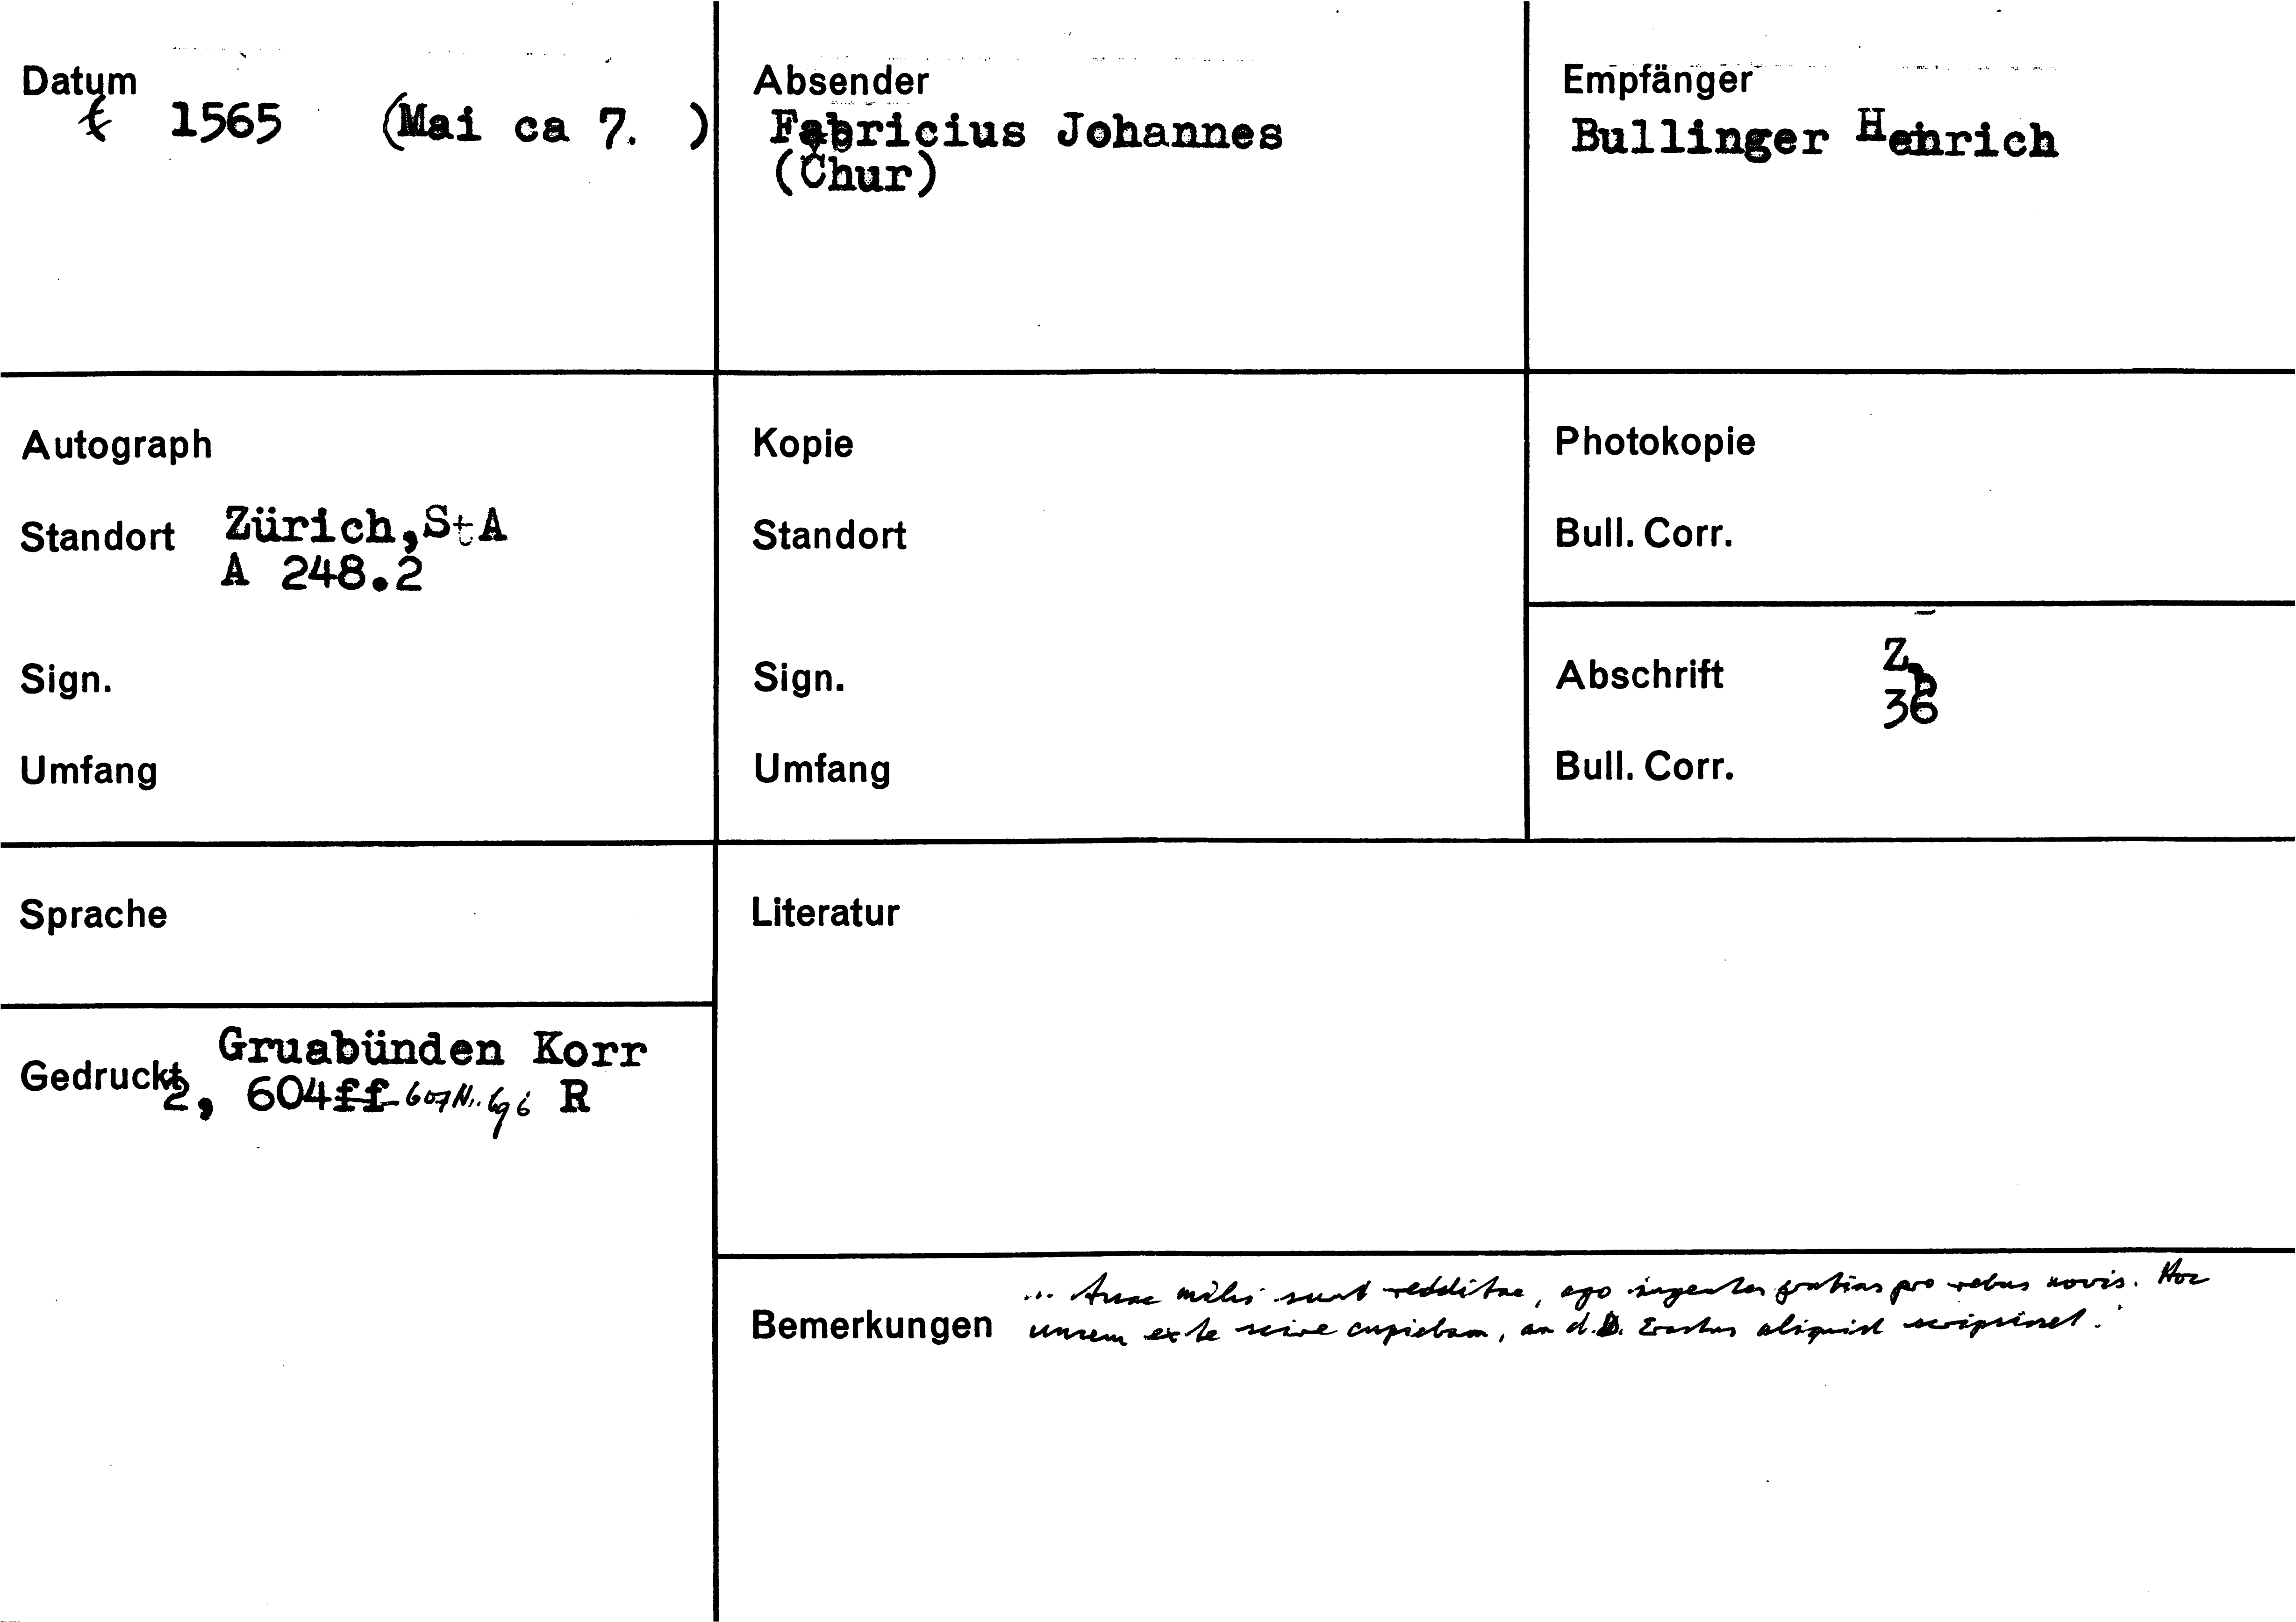 Datum
1565 (Mai ca 7. )
Absender
Fabricius Johannes
(Chur)
Empfänger
Bullinger Henrich
Autograph
Standort Zürich, StA
A 248.2
Sign.
Umfang
Kopie
Standort
Sign.
Umfang
Photokopie
Bull. Corr.
Abschrift Z
36
Bull. Corr.
Sprache
Literatur
Gedruckt Gruabünden Korr
2, 604ff 607 Nr. 696 R
Bemerkungen
... tuae mihi sunt redditae, ago ingentes gratias pro rebus novis. Hoc
unum ex te scire cupiebam, an d. D. Erastus aliquid scripsisset.